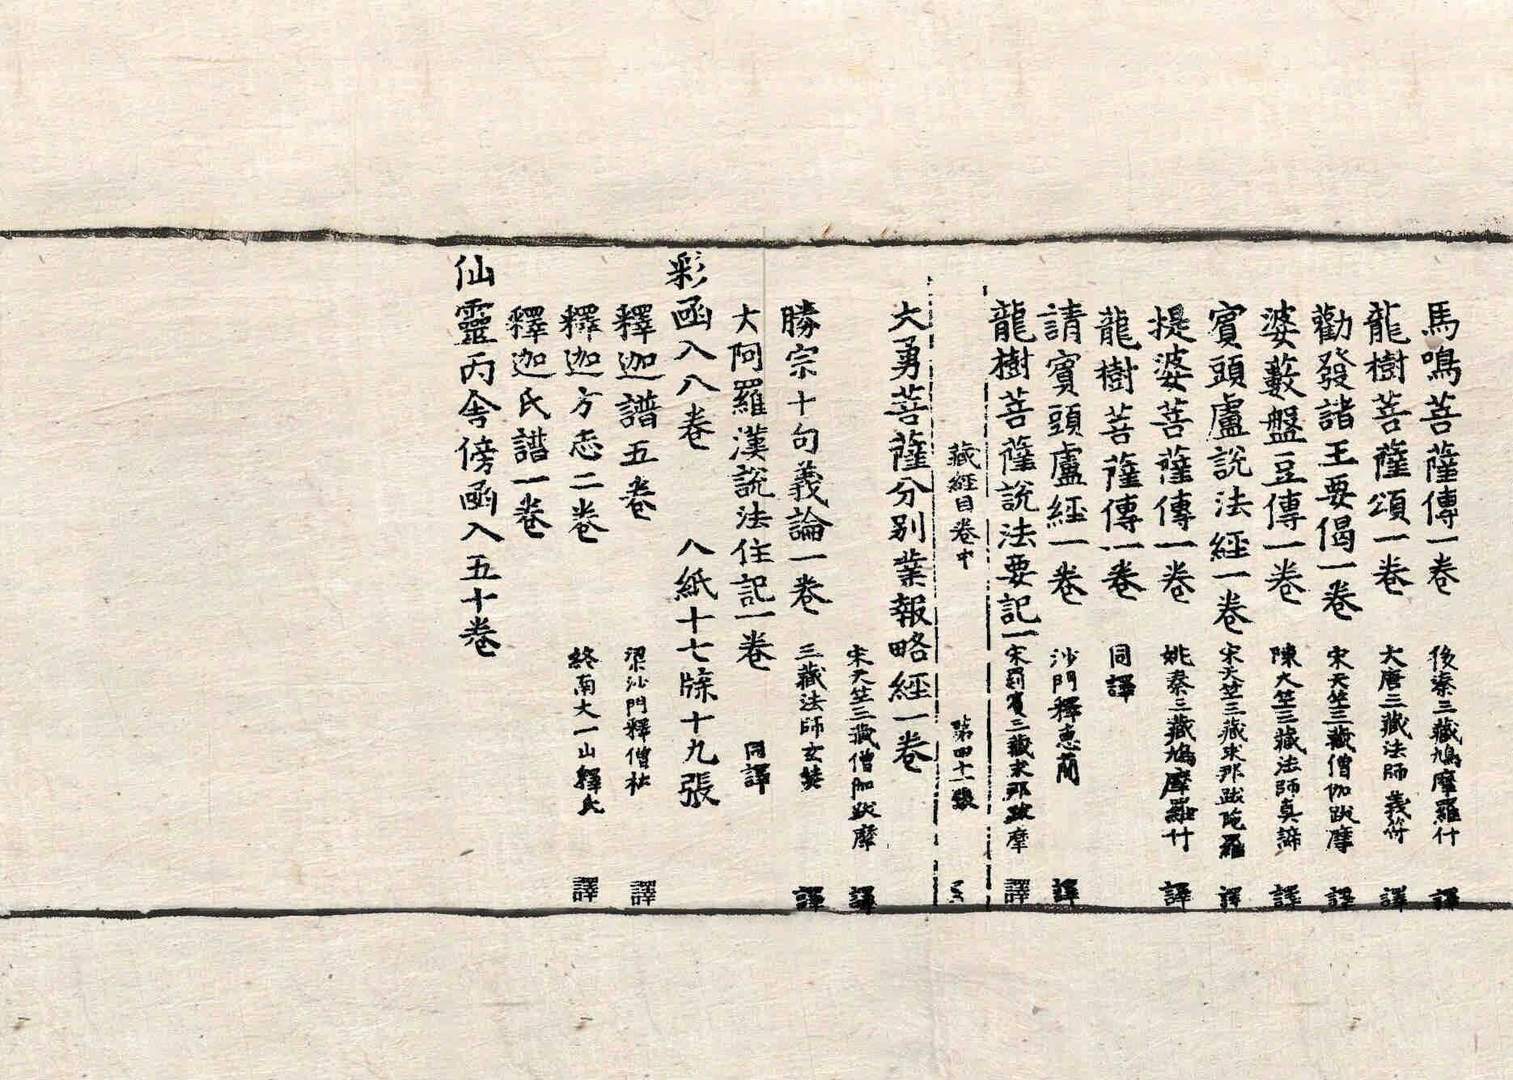 馬鳴菩薩傳一卷 後秦三藏鳩摩羅什 譯
龍樹菩薩頌一卷 大唐三藏法師義符 譯
勸發諸王要偈一卷 宋天竺三藏僧伽跋摩 譯
婆藪盤豆傳一卷 陳天竺三藏法師真諦 譯
賓頭盧說法經一卷 宋天竺三藏求那跋陁羅 譯
提婆菩薩傳一卷 姚秦三藏鳩摩羅什 譯
龍樹菩薩傳一卷 同譯
請賓頭盧経一卷 沙門釋惠蕳 譯
龍樹菩薩說法要記一 宋罽賓三藏求那跋摩 譯
藏經目卷中 第四十一張
大勇菩薩分别業報略經一卷 宋天竺三藏僧伽跋摩 譯
勝宗十句義論一卷 三藏法師玄奘 譯
大阿羅漢說法住記一卷 同譯
彩函入八卷 八紙十七牒十九張
釋迦譜五卷 梁沙門釋僧祐 譯
釋迦方志二卷 終南大一山釋氏 譯
釋迦氏譜一卷
仙靈丙舍傍函入五十卷